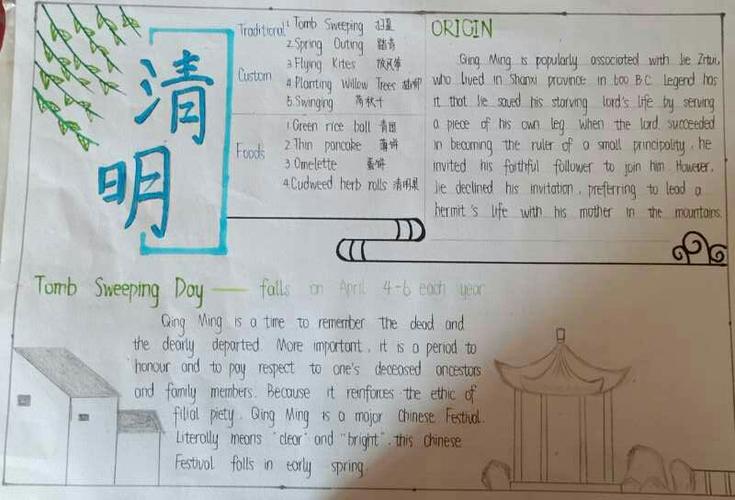 清
明
Traditional Custom
1 Tomb Sweeping 扫墓
2.Spring Outing 踏青
3 Flying Kites 放风筝
4 Planting Willow Trees 插柳
5.Swinging 荡秋千
Foods
1 Green rice ball 青团
2 Thin pancake 薄饼
3 Omelette 蛋饼
4.Cudweed herb rolls 清明果
ORIGIN
Qing Ming is popularly associated with Jie Zitui,
who lived in Shanxi province in 600 B.C. Legend has
it that Jie saved his starving lord's life by serving
a piece of his own leg. When the lord succeeded
in becoming the ruler of a small principality, he
invited his faithful follower to join him. However,
Jie declined his invitation, preferring to lead a
hermit's life with his mother in the mountains.
Tomb Sweeping Day — falls on April 4-6 each year
Qing Ming is a time to remember the dead and
the dearly departed. More important, it is a period to
honour and to pay respect to one's deceased ancestors
and family members. Because it reinforces the ethic of
filial piety, Qing Ming is a major Chinese Festival.
Literally means "clear" and "bright", this Chinese
Festival falls in early spring.